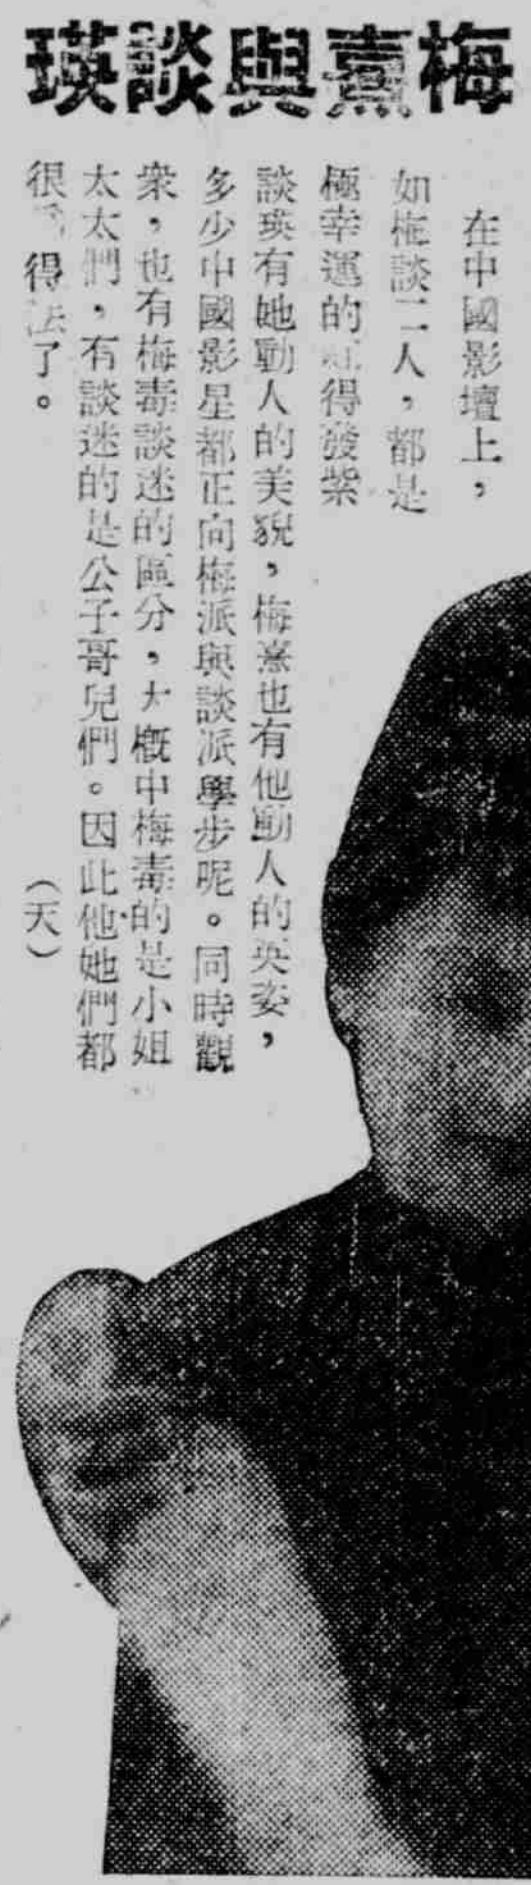 梅熹與談瑛
在中國影壇上，
如梅談二人，都是
極幸運的紅得發紫
談瑛有她動人的美貌，梅熹也有他動人的英姿，
多少中國影星都正向梅派與談派學步呢。同時觀
衆，也有梅毒談迷的區分，大概中梅毒的是小姐
太太們，有談迷的是公子哥兒們。因此他她們都
很 得法了。
（天）